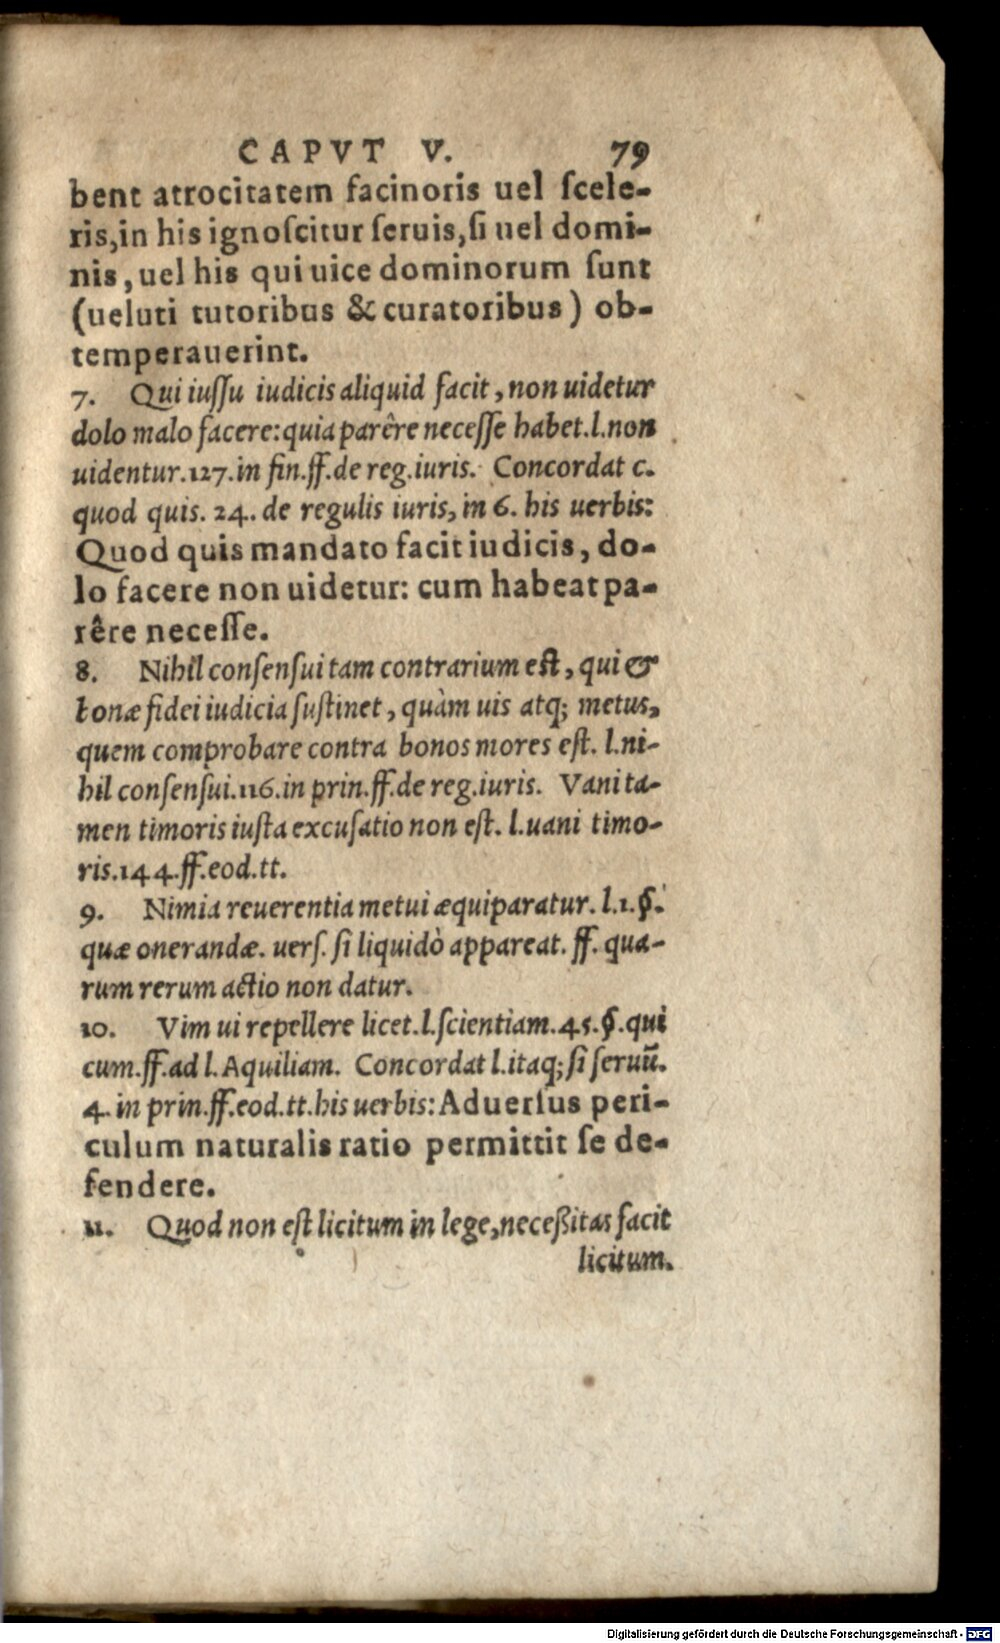 CAPVT V. 79
bent atrocitatem facinoris uel ſcele-
ris, in his ignoſcitur ſeruis, ſi uel domi-
nis, uel his qui uice dominorum ſunt
(ueluti tutoribus & curatoribus) ob-
temperauerint.
7. Qui iuſſu iudicis aliquid facit, non uidetur
dolo malo facere: quia parêre neceſſe habet. l. non
uidentur. 127. in fin. ff. de reg. iuris. Concordat c.
quod quis. 24. de regulis iuris, in 6. his uerbis:
Quod quis mandato facit iudicis, do-
lo facere non uidetur: cum habeat pa-
rêre neceſſe.
8. Nihil conſenſui tam contrarium eſt, qui &
bonæ fidei iudicia ſuſtinet, quàm uis atq; metus,
quem comprobare contra bonos mores eſt. l. ni-
hil conſenſui. 116. in prin. ff. de reg. iuris. Vani ta-
men timoris iuſta excuſatio non eſt. l. uani timo-
ris. 144. ff. eod. tt.
9. Nimia reuerentia metui æquiparatur. l. 1. §.
quæ onerandæ. uerſ. ſi liquidò appareat. ff. qua-
rum rerum actio non datur.
10. Vim ui repellere licet. l. ſcientiam. 45. §. qui
cum. ff. ad l. Aquiliam. Concordat l. itaq; ſi ſeruū.
4. in prin. ff. eod. tt. his uerbis: Aduerſus peri-
culum naturalis ratio permittit ſe de-
fendere.
11. Quod non eſt licitum in lege, neceßitas facit
licitum.
Digitalisierung gefördert durch die Deutsche Forschungsgemeinschaft - DFG